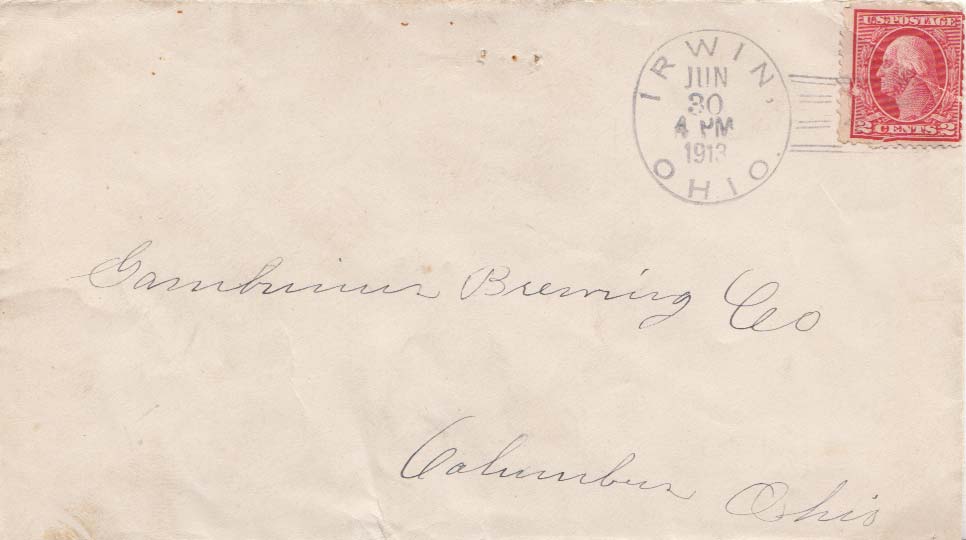 U.S. POSTAGE
2 CENTS 2
IRWIN,
JUN
30
4 PM
1913
OHIO.
Gambrinus Brewing Co
Columbus Ohio